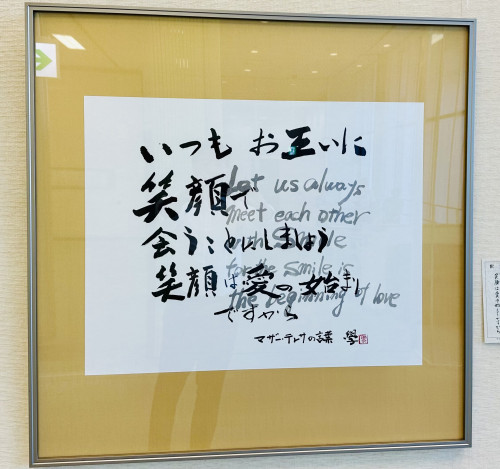 いつも お互いに
笑顔で
会うことにしましょう
笑顔は愛の始まり
ですから
マザー・テレサの言葉 學
Let us always
meet each other
with smile
for the smile is
the beginning of love